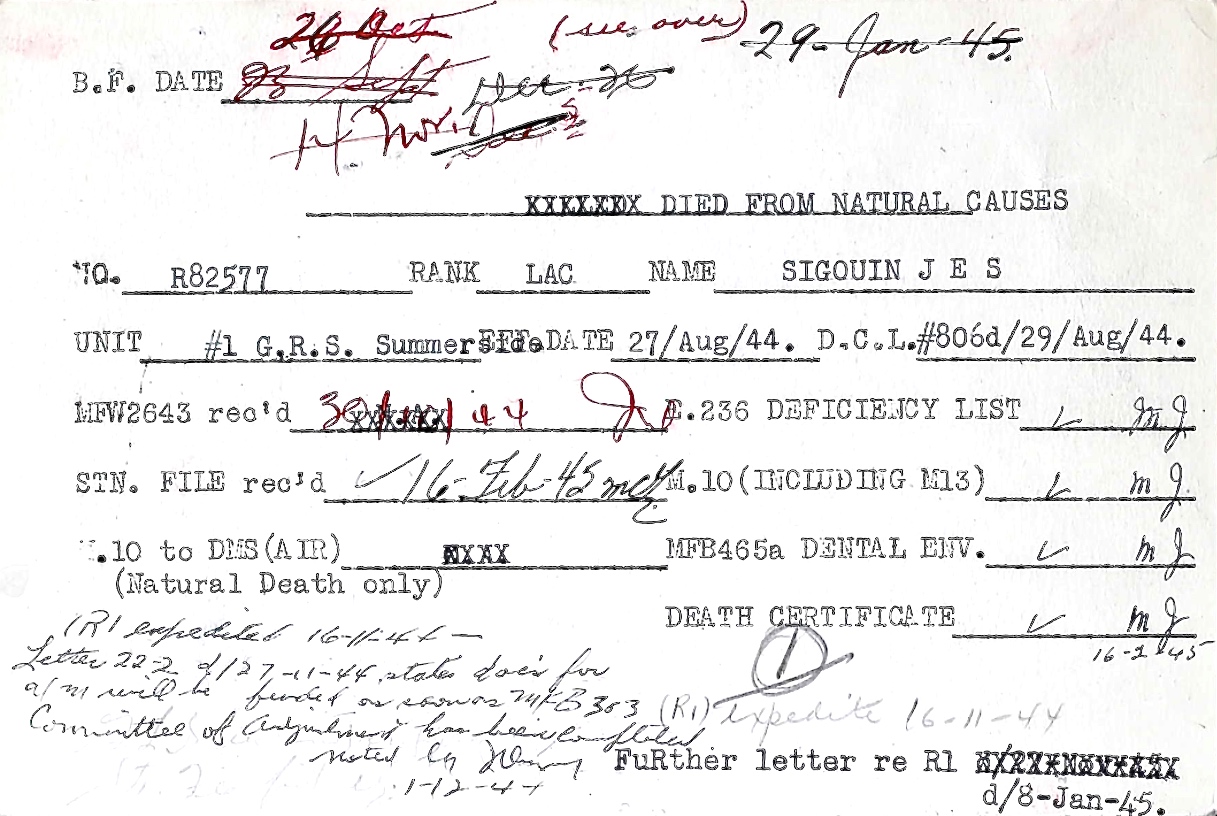 26 Oct (see over) 29-Jan-45.
B.F. DATE Sept Dec-26
14 Nov. Dec 5
XXXXXXX DIED FROM NATURAL CAUSES
NO. R82577 RANK LAC NAME SIGOUIN J E S
UNIT #1 G.R.S. Summerside EFF DATE 27/Aug/44. D.C.L.#806d/29/Aug/44.
MFW2643 rec'd 44 E.236 DEFICIENCY LIST ✓ M J
STN. FILE rec'd ✓ 16-Feb-45 M.10(INCLUDING M13) ✓ M J
M.10 to DMS(AIR) XXXX MFB465a DENTAL ENV. ✓ M J
(Natural Death only)
DEATH CERTIFICATE ✓ M J
16-2-45
1
(R1 expedited 16-11-44 —
Letter 22-2 d/27-11-44 states doc's for
a/m will be fwded as soon as MFB 303
Committee of Adjustment has been completed
noted by
1-12-44
(R1) expedite 16-11-44
FuRther letter re R1
d/8-Jan-45.